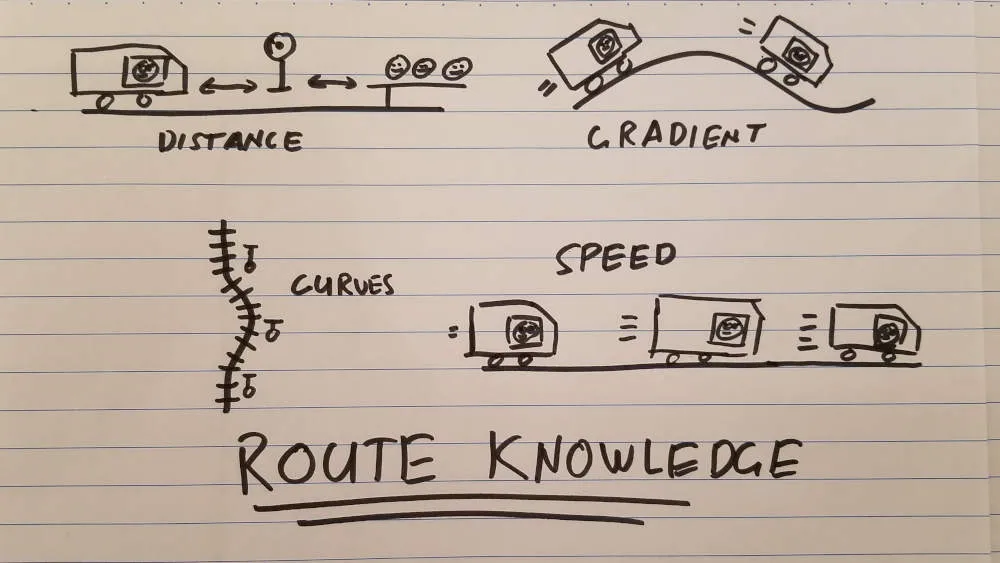 DISTANCE
GRADIENT
CURVES
SPEED
ROUTE KNOWLEDGE